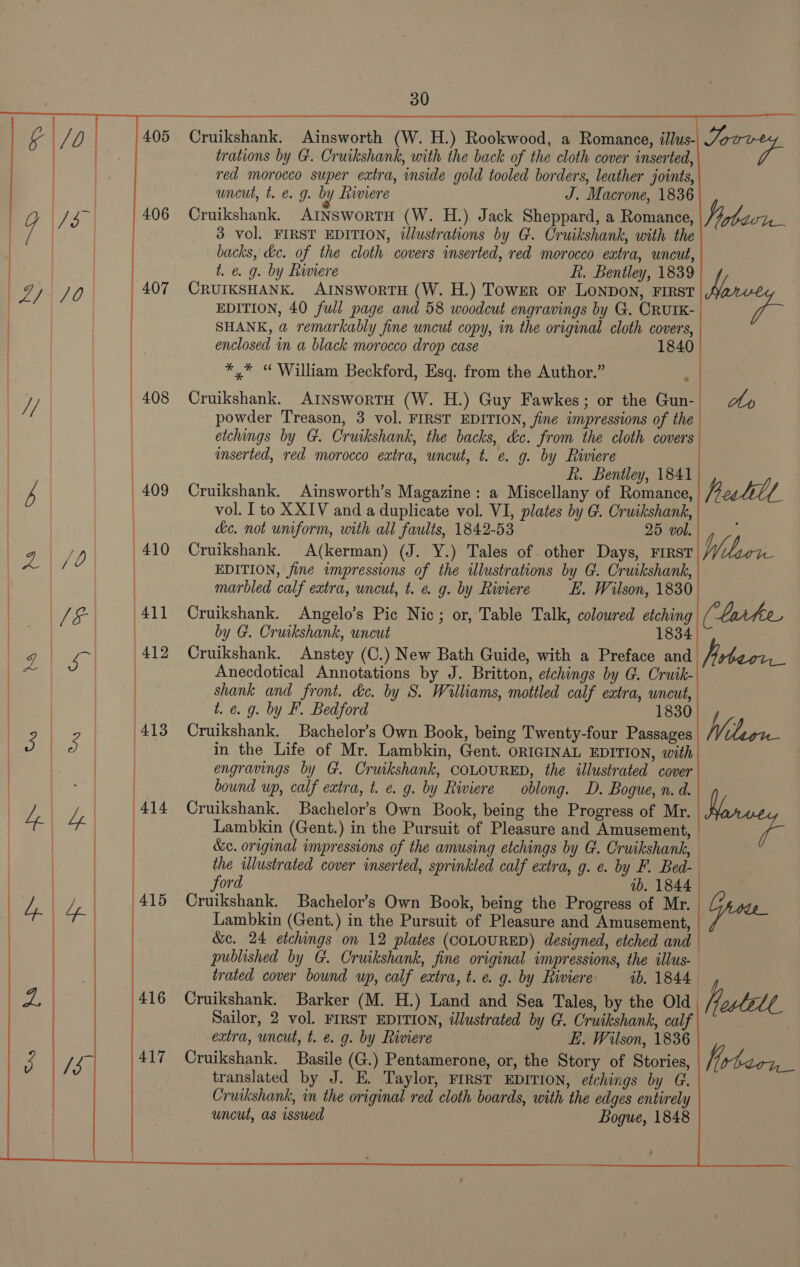 30
8 10 405 Cruikshank. Ainsworth (W. H.) Rookwood, a Romance, illus-
trations by G. Cruikshank, with the back of the cloth cover inserted,
red morocco super extra, inside gold tooled borders, leather joints,
uncut, t. e. g. by Riviere J. Macrone, 1836
9 15 406 Cruikshank. AINSWORTH (W. H.) Jack Sheppard, a Romance, Hobson
3 vol. FIRST EDITION, illustrations by G. Cruikshank, with the
backs, &c. of the cloth covers inserted, red morocco extra, uncut,
t. e. g. by Riviere R. Bentley, 1839
21 10 407 CRUIKSHANK. AINSWORTH (W. H.) TOWER OF LONDON, FIRST Harvey
EDITION, 40 full page and 58 woodcut engravings by G. CRUIK-
SHANK, a remarkably fine uncut copy, in the original cloth covers,
enclosed in a black morocco drop case 1840
*** “William Beckford, Esq. from the Author.”
11 408 Cruikshank. AINSWORTH (W. H.) Guy Fawkes; or the Gun- do
powder Treason, 3 vol. FIRST EDITION, fine impressions of the
etchings by G. Cruikshank, the backs, &c. from the cloth covers
inserted, red morocco extra, uncut, t. e. g. by Riviere
R. Bentley, 1841
6 409 Cruikshank. Ainsworth's Magazine: a Miscellany of Romance, Restell
vol. I to XXIV and a duplicate vol. VI, plates by G. Cruikshank,
&c. not uniform, with all faults, 1842-53 25 vol.
2 10 410 Cruikshank. A(kerman) (J. Y.) Tales of other Days, FIRST Wilson
EDITION, fine impressions of the illustrations by G. Cruikshank,
marbled calf extra, uncut, t. e. g. by Riviere E. Wilson, 1830
18 411 Cruikshank. Angelo's Pic Nic; or, Table Talk, coloured etching Clarke
by G. Cruikshank, uncut 1834
2 5 412 Cruikshank. Anstey (C.) New Bath Guide, with a Preface and Hobson
Anecdotical Annotations by J. Britton, etchings by G. Cruik-
shank and front. &c. by S. Williams, mottled calf extra, uncut,
t. e. g. by F. Bedford 1830
3 3 413 Cruikshank. Bachelor's Own Book, being Twenty-four Passages Wilson
in the Life of Mr. Lambkin, Gent. ORIGINAL EDITION, with
engravings by G. Cruikshank, COLOURED, the illustrated cover
bound up, calf extra, t. e. g. by Riviere oblong. D. Bogue, n. d.
4 4 414 Cruikshank. Bachelor's Own Book, being the Progress of Mr. Harvey
Lambkin (Gent.) in the Pursuit of Pleasure and Amusement,
&c. original impressions of the amusing etchings by G. Cruikshank,
the illustrated cover inserted, sprinkled calf extra, g. e. by F. Bed-
ford ib. 1844
4 4 415 Cruikshank. Bachelor's Own Book, being the Progress of Mr.
Lambkin (Gent.) in the Pursuit of Pleasure and Amusement,
&c. 24 etchings on 12 plates (COLOURED) designed, etched and
published by G. Cruikshank, fine original impressions, the illus-
trated cover bound up, calf extra, t. e. g. by Riviere ib. 1844
2 416 Cruikshank. Barker (M. H.) Land and Sea Tales, by the Old Restell
Sailor, 2 vol. FIRST EDITION, illustrated by G. Cruikshank, calf
extra, uncut, t. e. g. by Riviere E. Wilson, 1836
3 15 417 Cruikshank. Basile (G.) Pentamerone, or, the Story of Stories, Hobson
translated by J. E. Taylor, FIRST EDITION, etchings by G.
Cruikshank, in the original red cloth boards, with the edges entirely
uncut, as issued Bogue, 1848